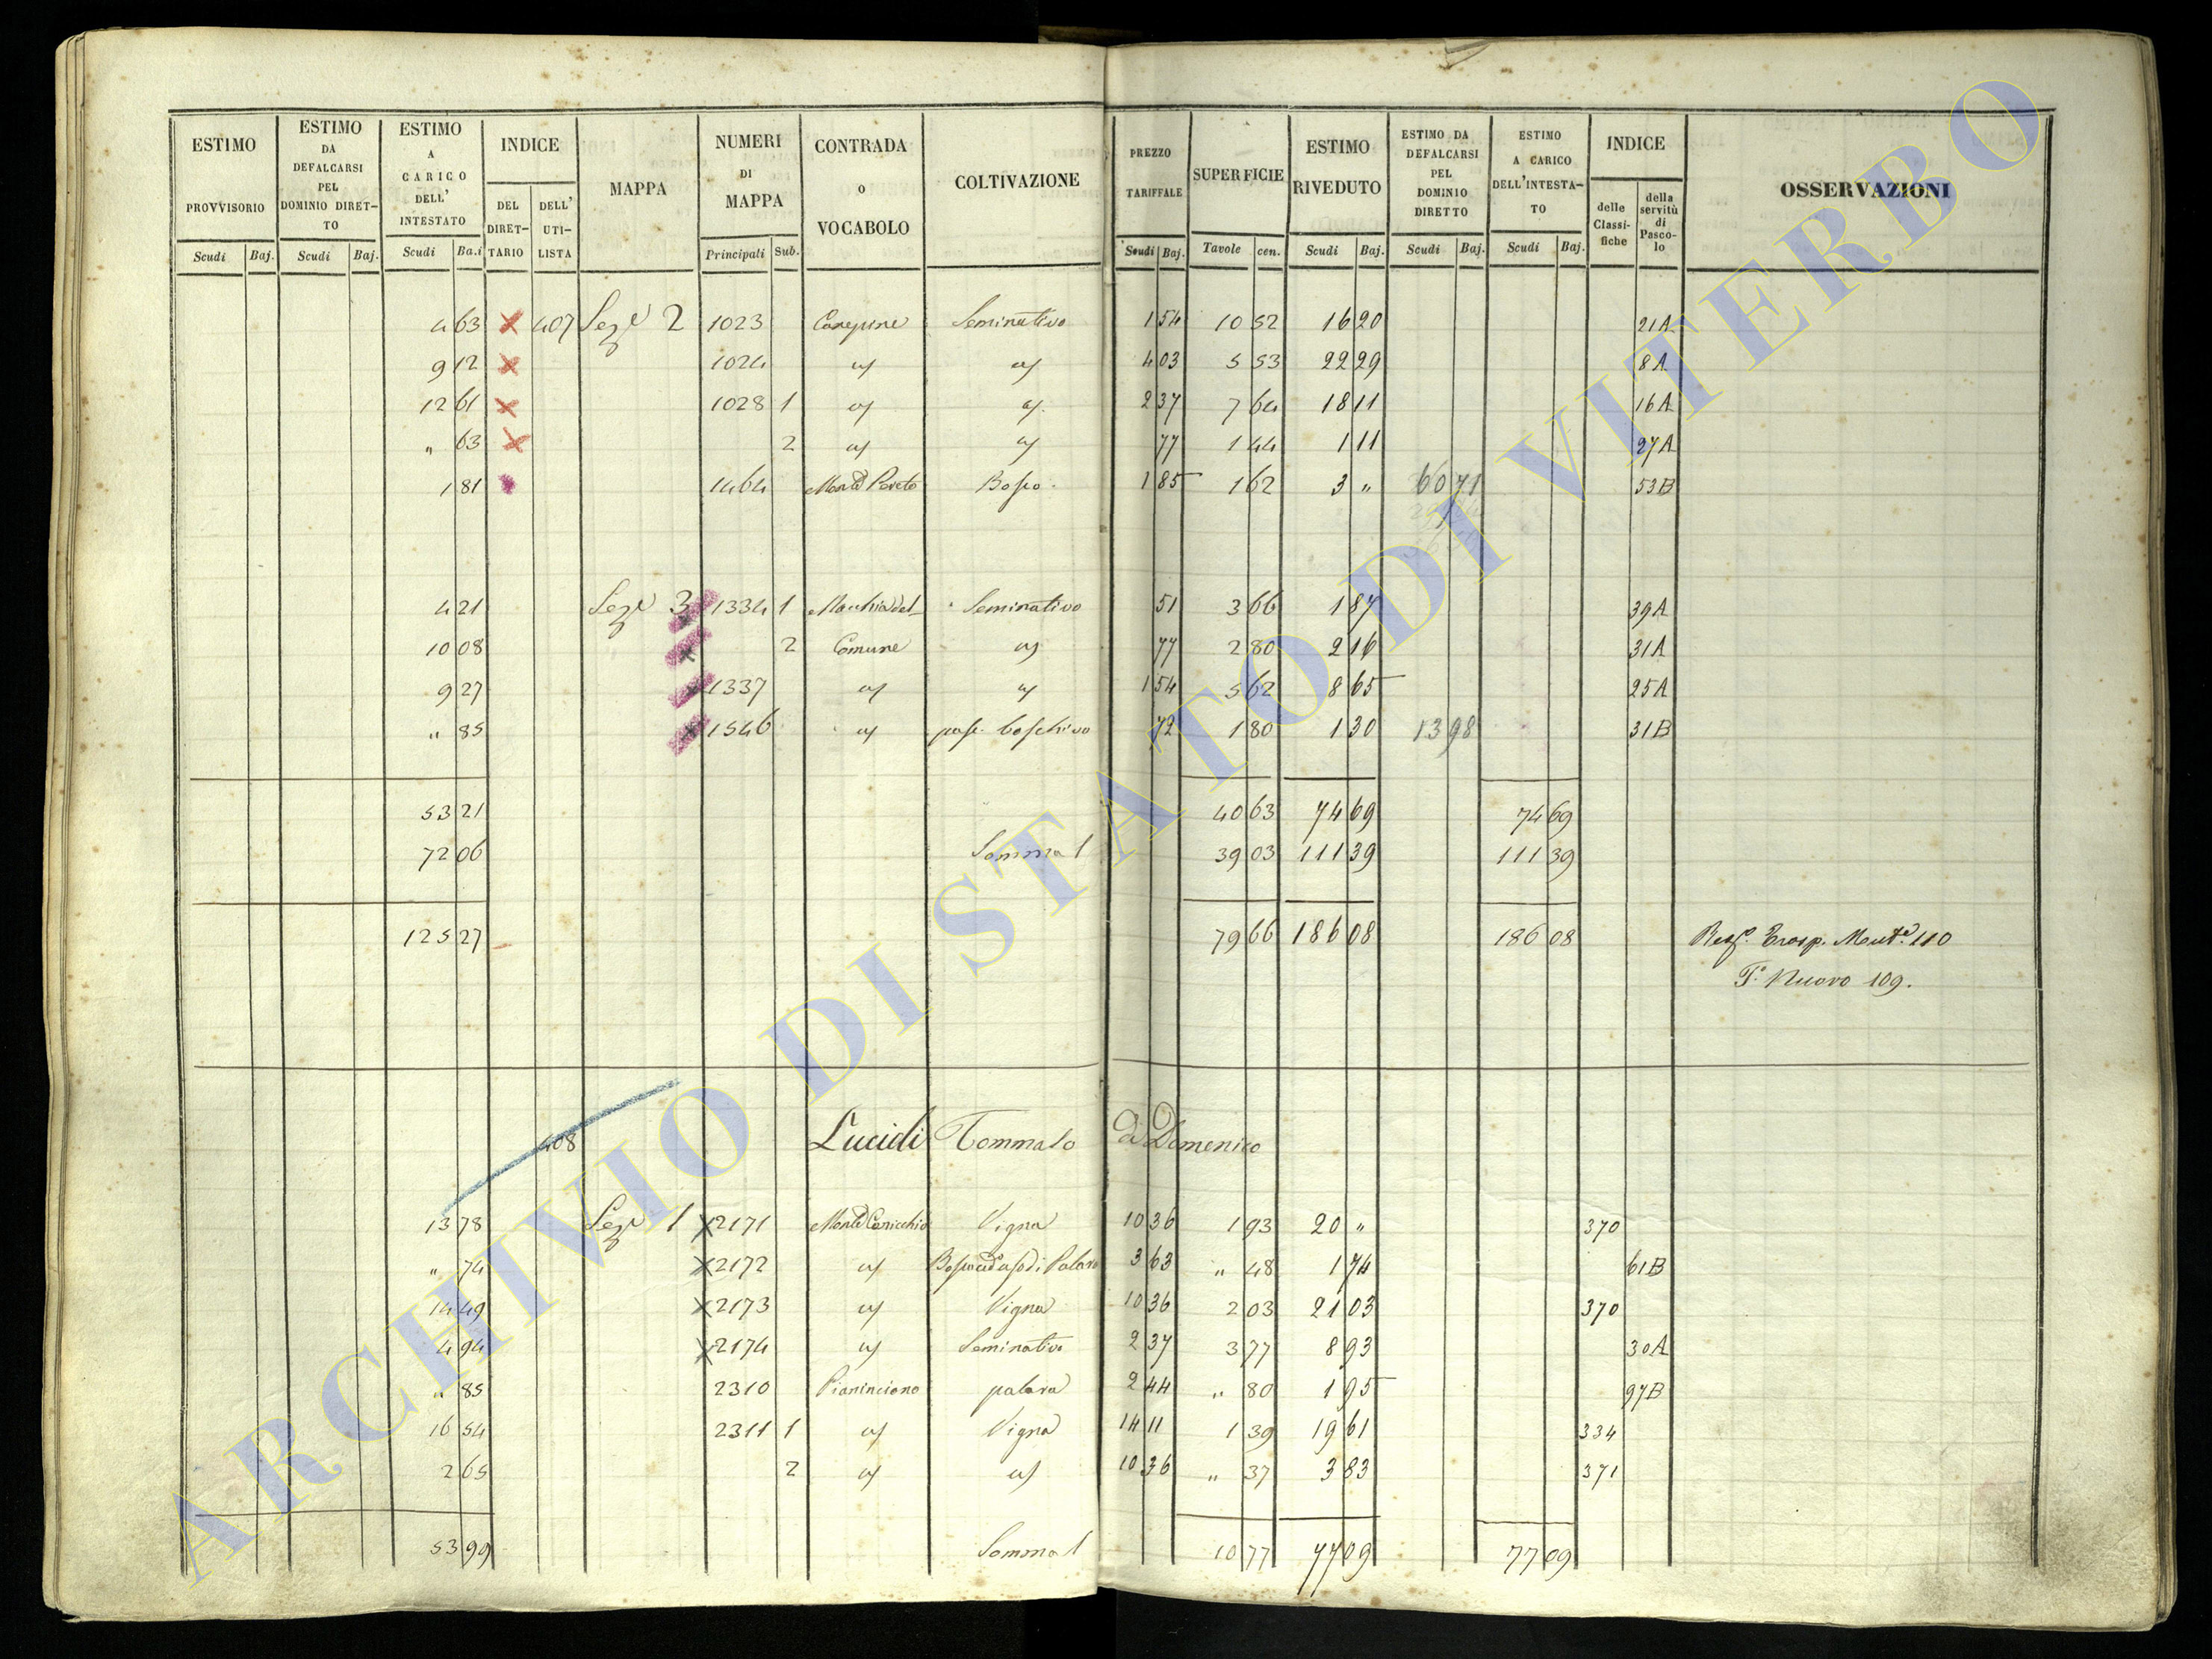 ESTIMO PROVVISORIO Scudi Baj.
ESTIMO DA DEFALCARSI PEL DOMINIO DIRET-TO Scudi Baj.
ESTIMO A CARICO DELL' INTESTATO Scudi Ba.i
INDICE DEL DIRET-TARIO DELL' UTI-LISTA
MAPPA
NUMERI DI MAPPA Principali Sub.
CONTRADA o VOCABOLO
COLTIVAZIONE
PREZZO TARIFFALE Scudi Baj.
SUPERFICIE Tavole cen.
ESTIMO RIVEDUTO Scudi Baj.
ESTIMO DA DEFALCARSI PEL DOMINIO DIRETTO Scudi Baj.
ESTIMO A CARICO DELL'INTESTA-TO Scudi Baj.
INDICE delle Classi-fiche della servitù di Pasco-lo
OSSERVAZIONI
4 63 x 407 Sez.e 2 1023 Canepine Seminativo 1 54 10 52 16 20 21A
9 12 x 1024 " " 4 03 5 53 22 29 8A
12 61 x 1028 1 " " 2 37 7 64 18 11 16A
" 63 x 2 " " 77 1 44 1 11 27A
1 81 1464 Monte Poreto Bosco 1 85 1 62 3 " 60 71 53B
4 21 Sez.e 3 1334 1 Macchia del Seminativo 51 3 66 1 87 39A
10 08 x 2 Comune " 77 2 80 2 16 31A
9 27 x 1337 " " 1 54 5 62 8 65 25A
" 85 x 1546 " pasc. boschivo 72 1 80 1 30 13 98 31B
53 21 40 63 74 69 74 69
72 06 Somma 1 39 03 111 39 111 39
125 27 79 66 186 08 186 08 Reg. Trasp. Mont. 110
T. Nuovo 109.
408 Lucidi Tommaso di Domenico
13 78 Sez.e 1 x 2171 Monte Canicchio Vigna 10 36 1 93 20 " 370
" 74 x 2172 " Bosco ced. uso di Palara 3 63 " 48 1 74 61B
14 49 x 2173 " Vigna 10 36 2 03 21 03 370
4 94 x 2174 " Seminativo 2 37 3 77 8 93 30A
" 85 2310 Pianinciano palara 2 44 " 80 1 95 97B
16 54 2311 1 " Vigna 14 11 1 39 19 61 334
2 65 2 " " 10 36 " 37 3 83 371
53 99 Somma 1 10 77 77 09 77 09
ARCHIVIO DI STATO DI VITERBO